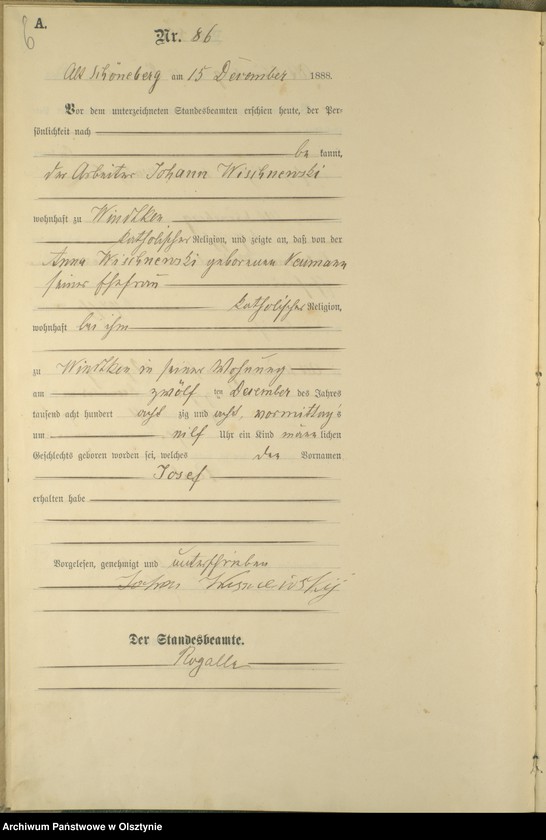 6
A.
Nr. 86
Alt Schöneberg am 15 December 1888.
Vor dem unterzeichneten Standesbeamten erschien heute, der Per-
sönlichkeit nach
be kannt,
der Arbeiter Johann Wischnewski
wohnhaft zu Windtken
katholischer Religion, und zeigte an, daß von der
Anna Wischnewski geborenen Neumann
seiner Ehefrau
katholischer Religion,
wohnhaft bei ihm
zu Windtken in seiner Wohnung
am zwölf ten December des Jahres
tausend acht hundert acht zig und acht, vormittag's
um eilf Uhr ein Kind männlichen
Geschlechts geboren worden sei, welches den Vornamen
Josef
erhalten habe
Vorgelesen, genehmigt und unterschrieben
Der Standesbeamte.
Rogalla
Archiwum Państwowe w Olsztynie